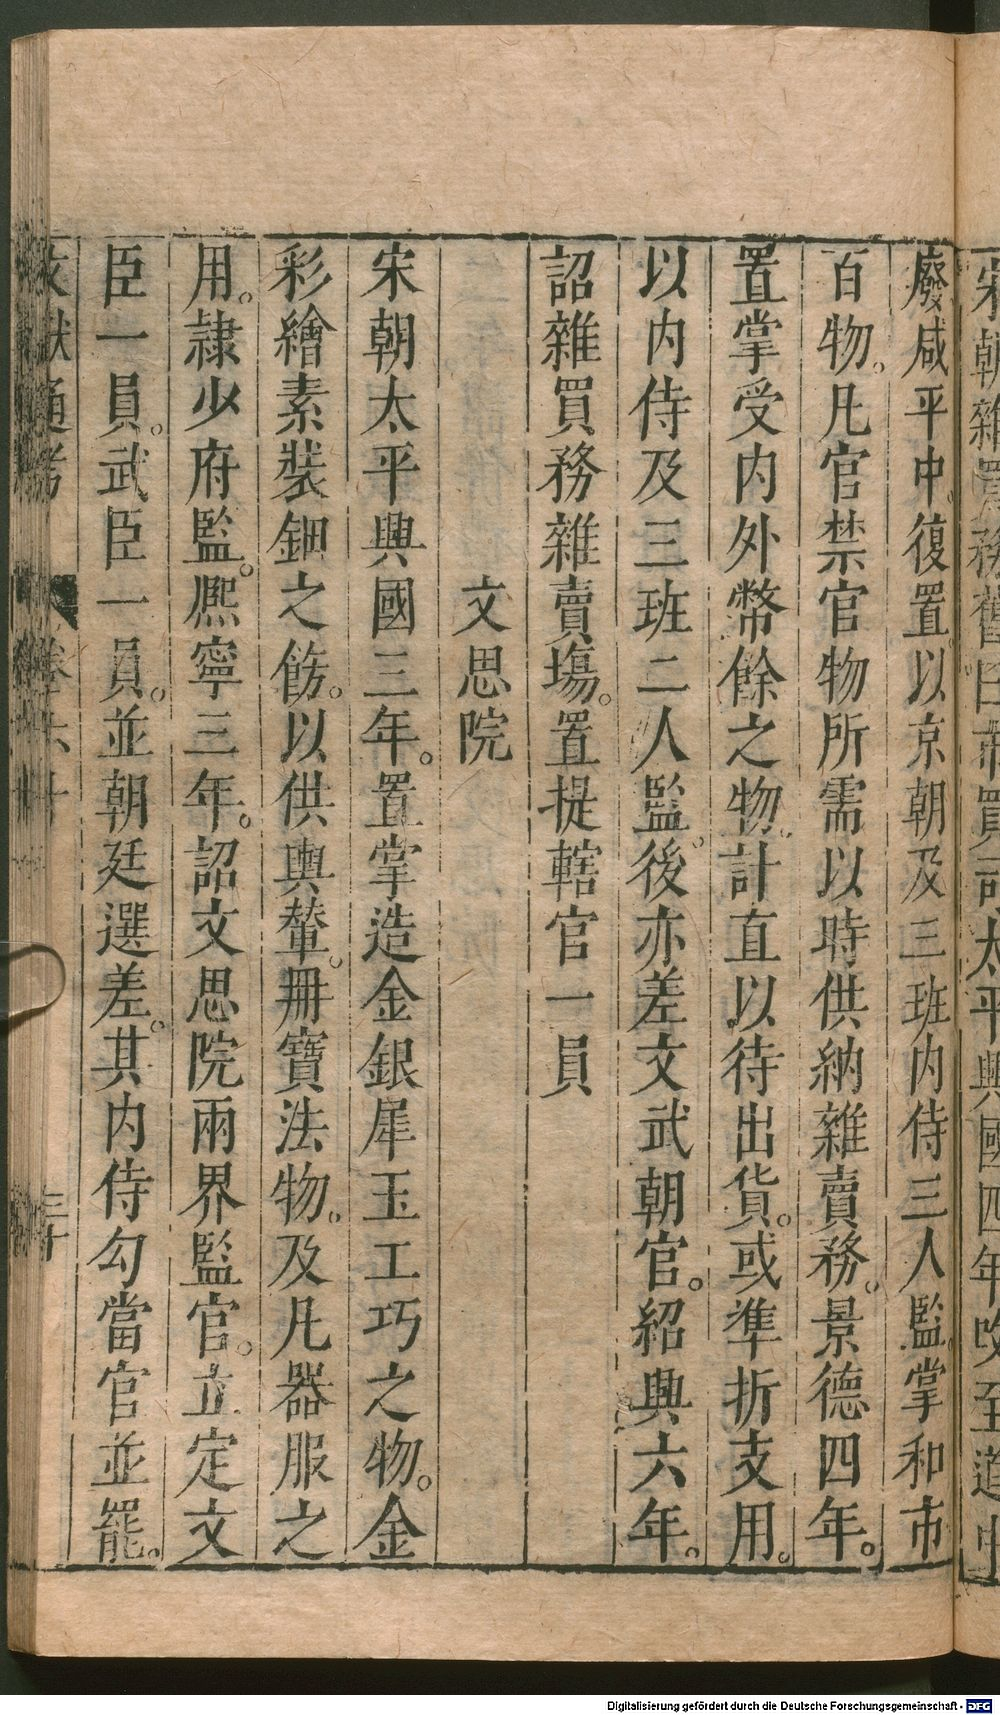 宋朝雜買務舊曰市買司太平興國四年改至道中
廢咸平中。復置。以京朝及三班内侍三人監。掌和市
百物。凡官禁官物所需以時供納雜賣務。景德四年。
置掌受内外幣餘之物。計直以待出貨。或準折支用。
以内侍及三班二人監。後亦差文武朝官。紹興六年。
詔雜買務雜賣塲。置提轄官一員
文思院
宋朝太平興國三年。置掌造金銀犀玉工巧之物。金
彩繪素裝鈿之餝。以供輿輦。冊寶法物。及凡器服之
用。隷少府監。熈寧三年。詔文思院兩界監官。立定文
臣一員。武臣一員。並朝廷選差。其内侍勾當官並罷。
文獻通考 卷六十 三十
Digitalisierung gefördert durch die Deutsche Forschungsgemeinschaft - DFG